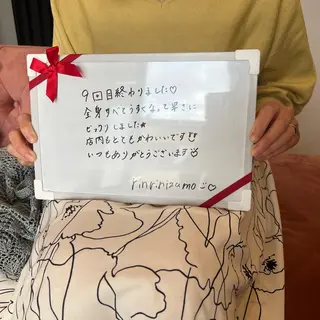 9回目終わりました♡
全身すべてうすくなって早さに
ビックリしました★
店内もとてもかわいいです!!
いつもありがとうございます
rinrinizumo ♡